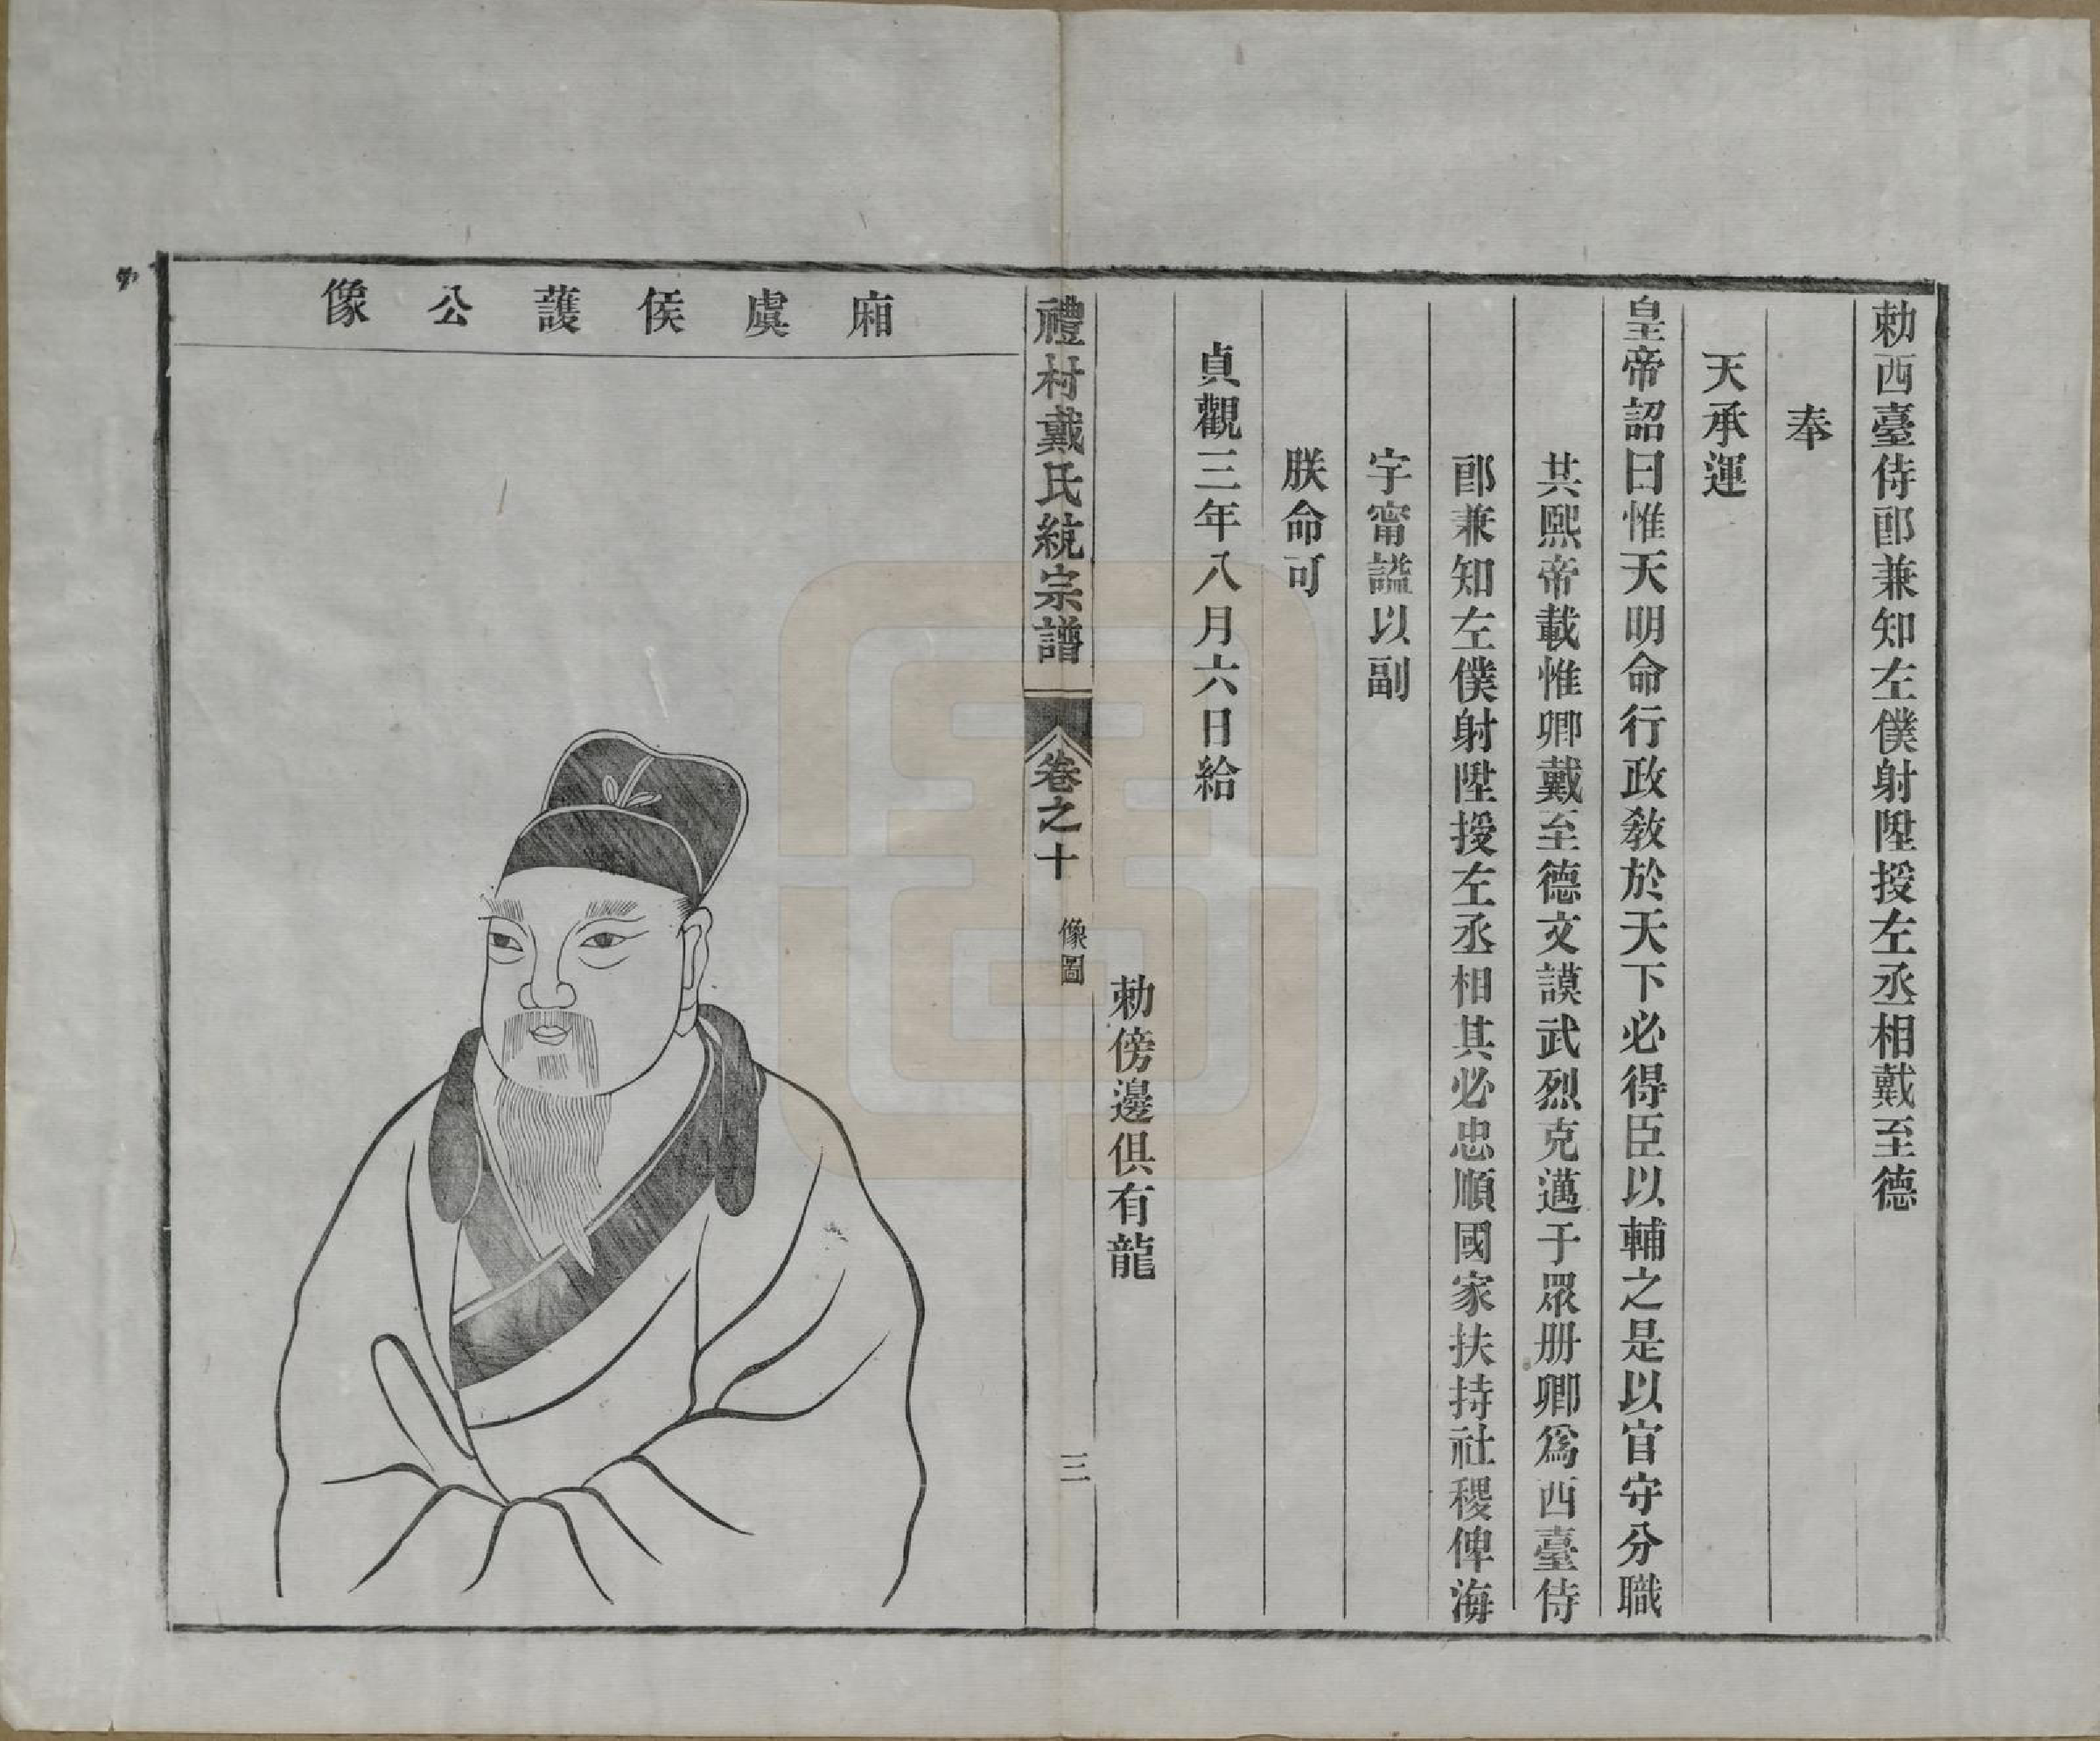 勅西臺侍郎兼知左僕射陞授左丞相戴至德
奉
天承運
皇帝詔曰惟天明命行政教於天下必得臣以輔之是以官守分職
共熙帝載惟卿戴至德文謨武烈克邁于眾册卿爲西臺侍
郎兼知左僕射陞授左丞相其必忠順國家扶持社稷俾海
宇甯謐以副
朕命可
貞觀三年八月六日給
勅傍邊俱有龍
禮村戴氏統宗譜
卷之十
像圖
三
廂虞侯護公像